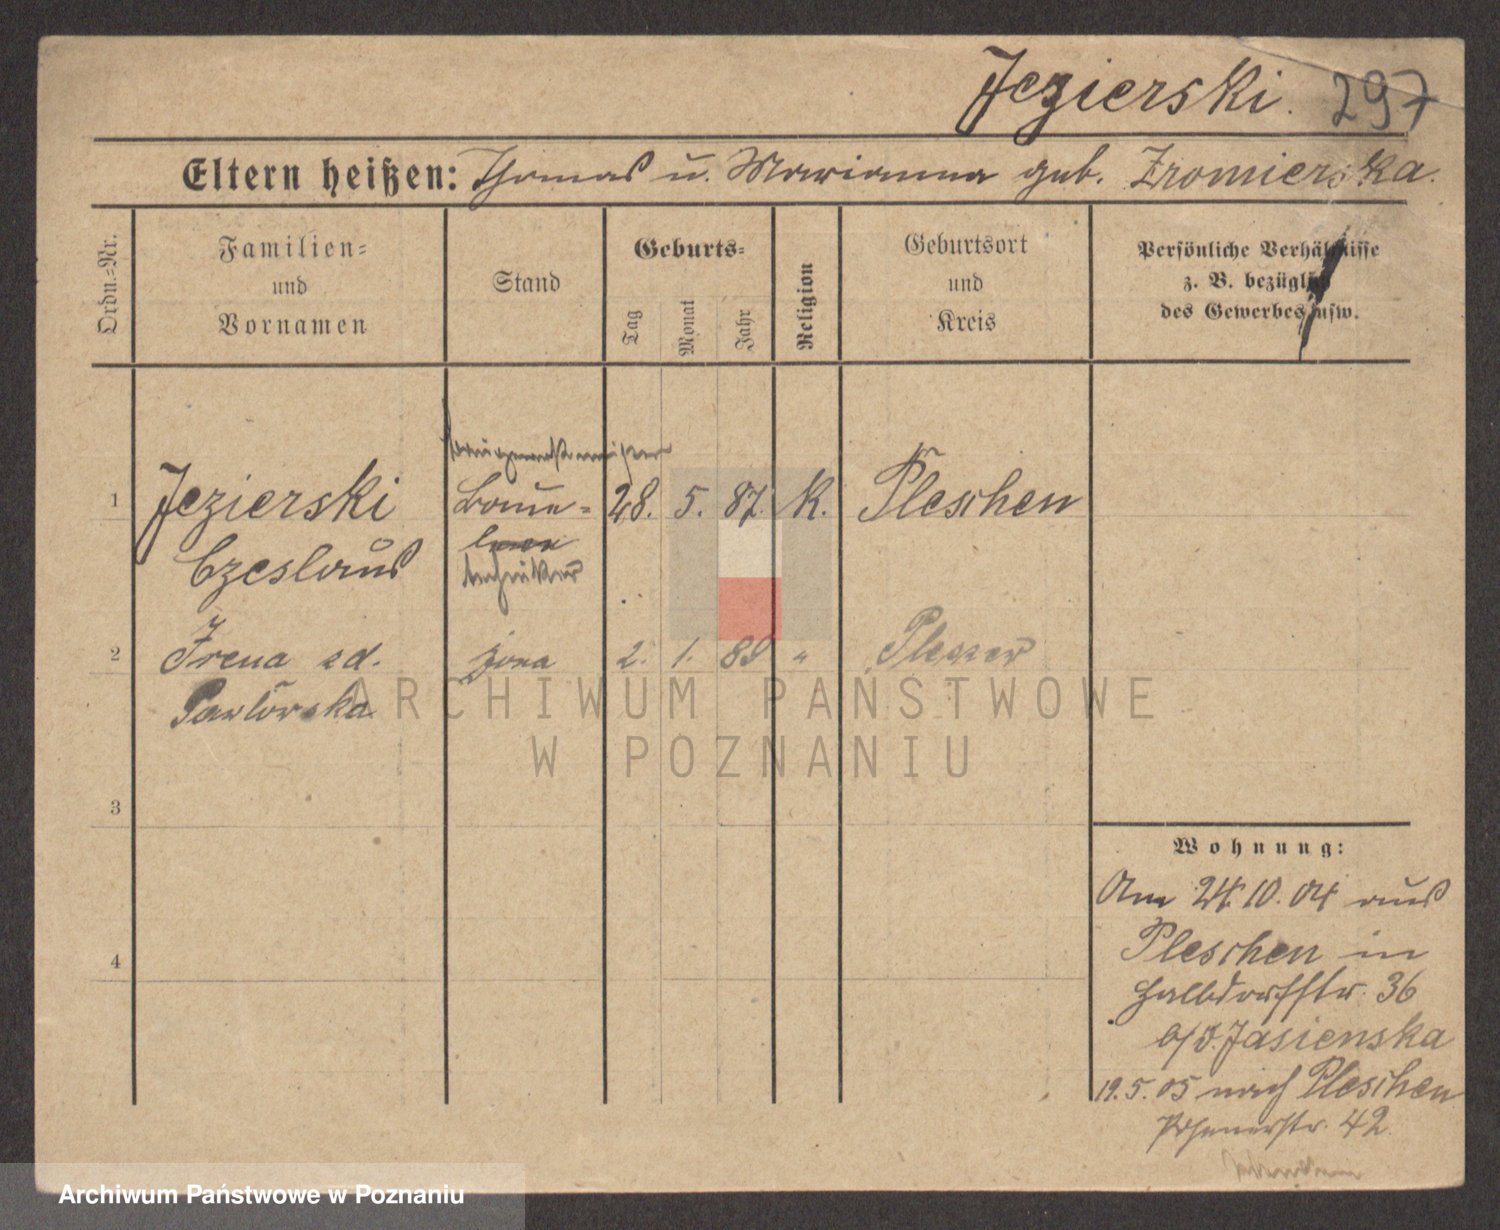 Jezierski. 297
Eltern heißen: Thomas u. Marianna geb. Zromierska.
Ordn.-Nr.
Familien-
und
Vornamen
Stand
Geburts-
Tag
Monat
Jahr
Religion
Geburtsort
und
Kreis
Persönliche Verhältnisse
z. B. bezüglich
des Gewerbes usw.
1 Jezierski Bau- 28. 5. 87. K. Pleschen
Czeslaus
techniker
2 Irena zd. żona 2. 1. 89 " Pleszew
Pawlowska
3
4
Wohnung:
Am 24.10.04 aus
Pleschen in
Halbdorfstr. 36
b/d. Jasienska
19.5.05 nach Pleschen
Posenerstr. 42
ARCHIWUM PAŃSTWOWE
W POZNANIU
Archiwum Państwowe w Poznaniu